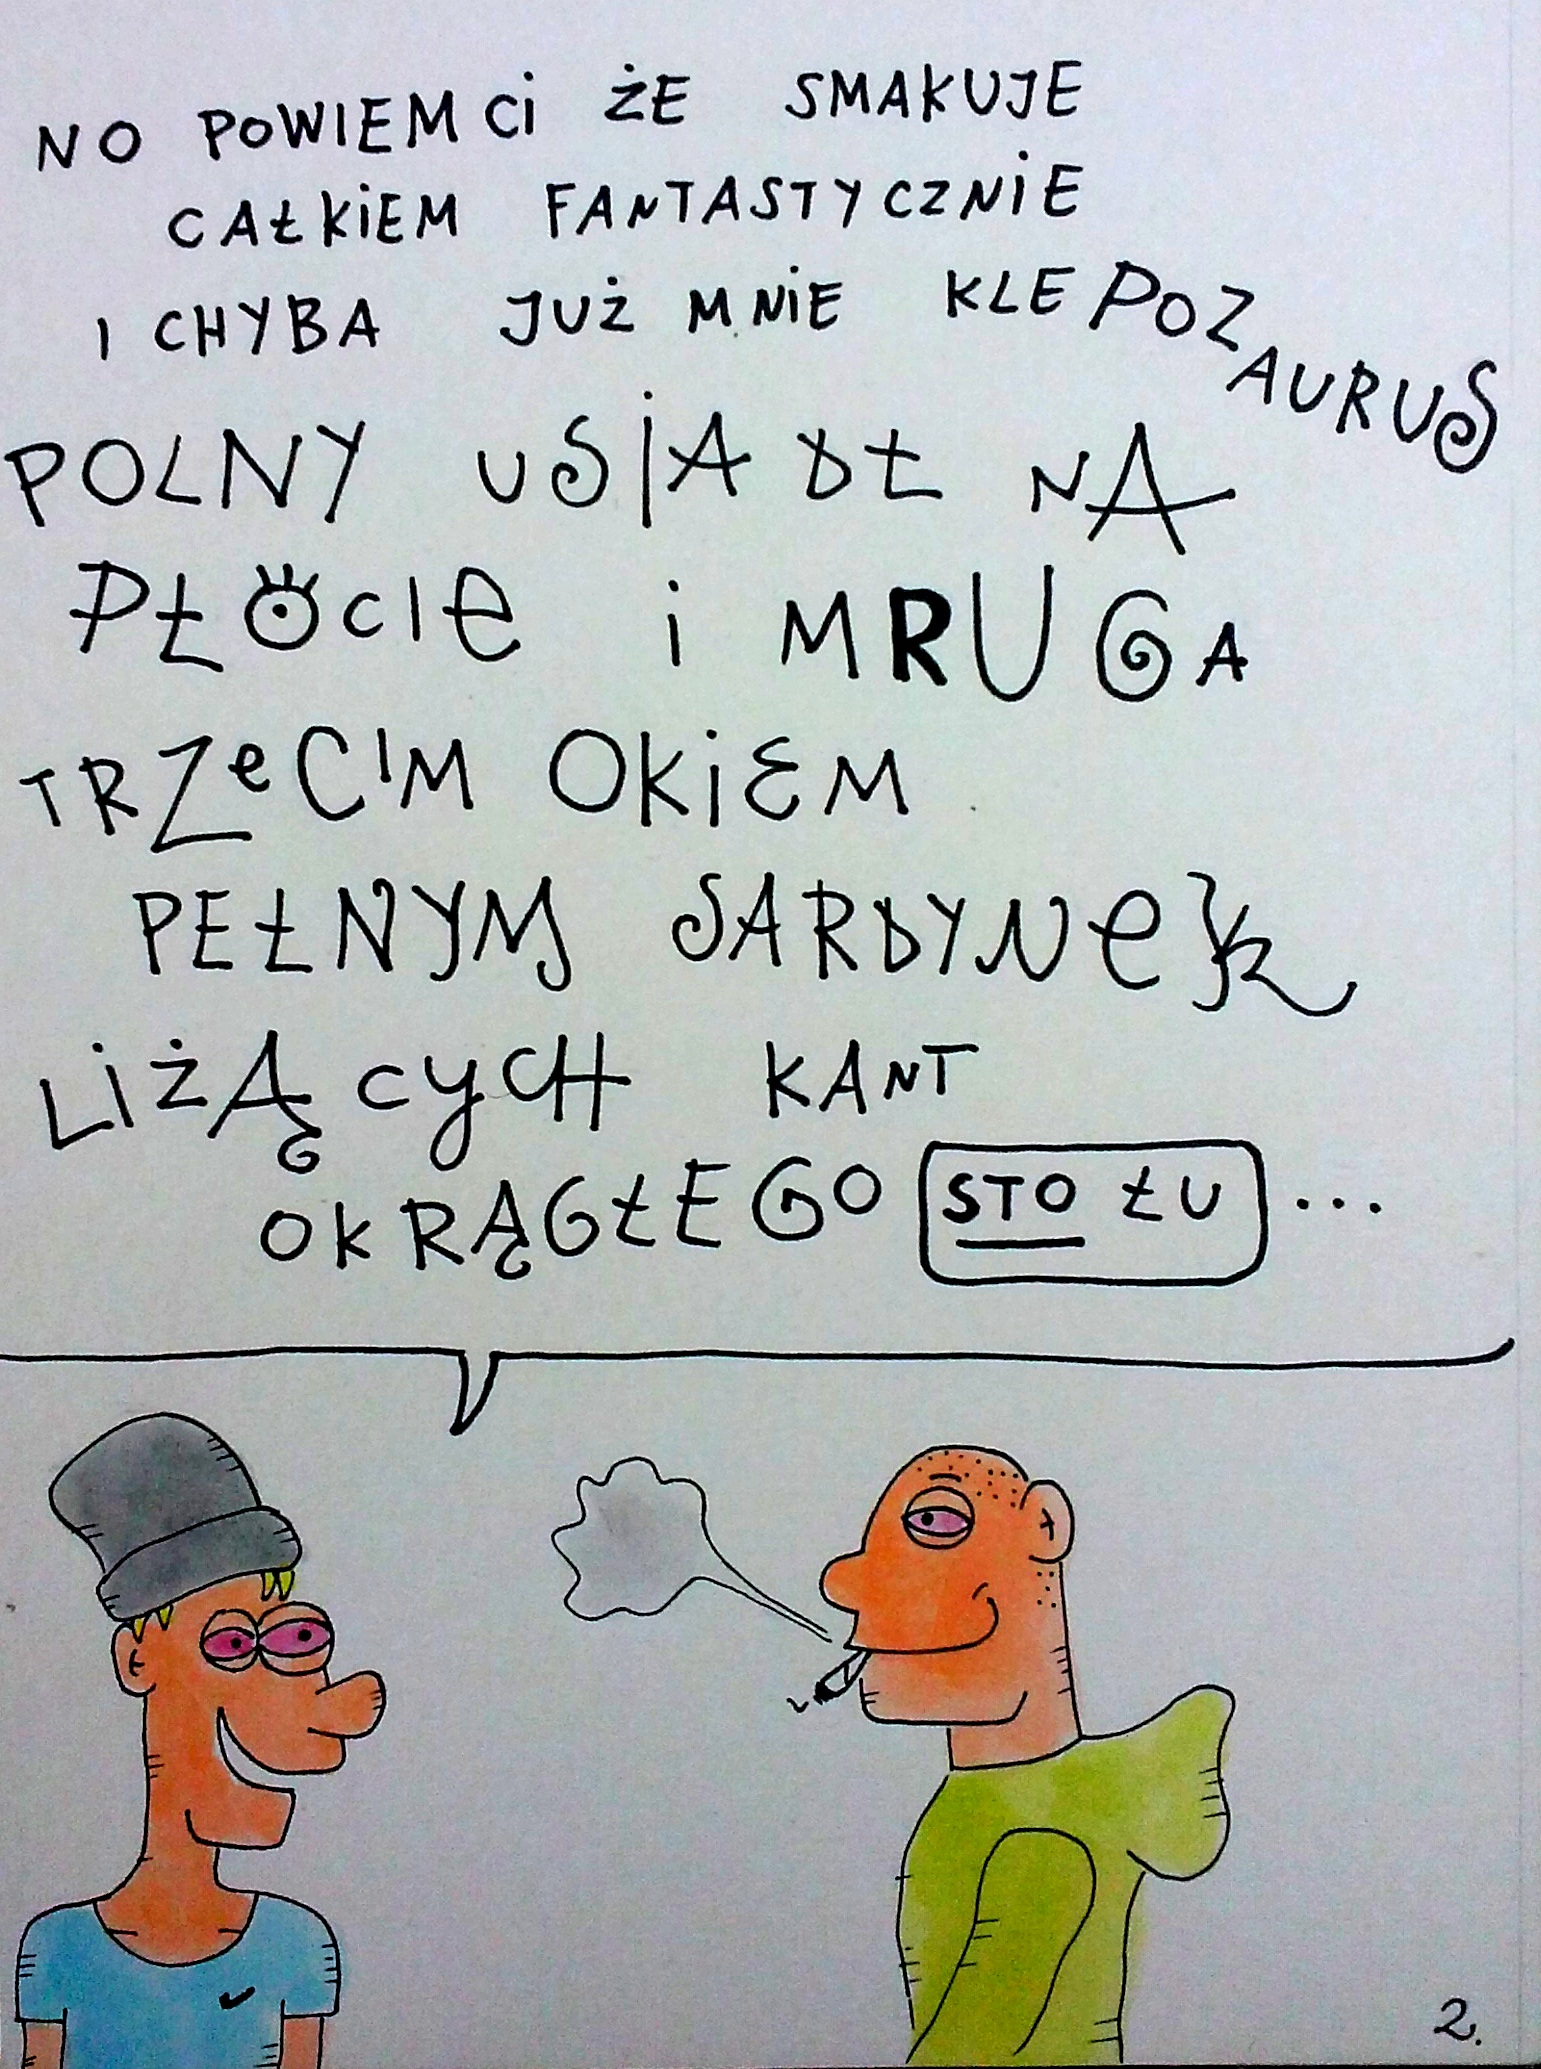 NO POWIEM CI ŻE SMAKUJE
CAŁKIEM FANTASTYCZNIE
I CHYBA JUŻ MNIE KLEPOZAURUS
POLNY USIADŁ NA
PŁOCIE i MRUGA
TRZECIM OKIEM
PEŁNYM SARDYNEK
LIŻĄCYCH KANT
OKRĄGŁEGO STOŁU...
2.